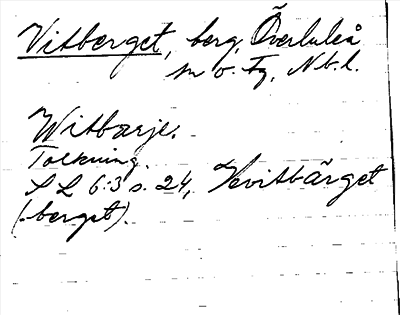 Vitberget, berg, Överluleå
sn o. tg, Nb.l.
Witbarje.
Tolkning.
SL 6:3 s. 24, Hvitbärget
(-berget).